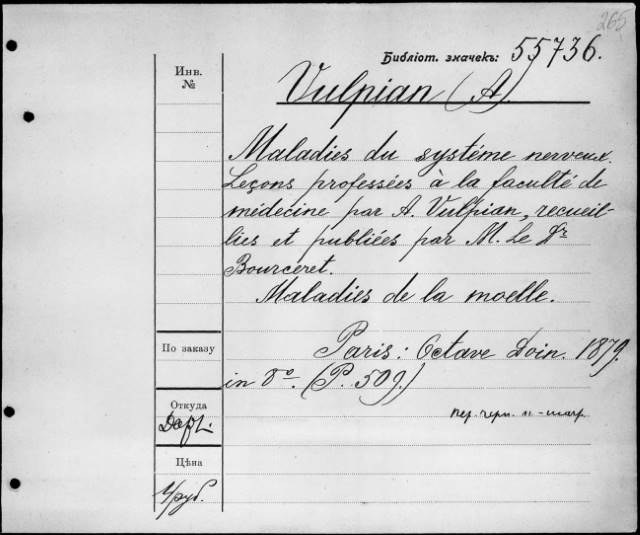 265
Библіот. значекъ: 55736.
Инв.
№
Vulpian (A)
Maladies du systéme nerveux.
Leçons professées à la faculté de
médecine par A. Vulpian, recueil-
lies et publiées par M. Le Dr
Bourceret.
Maladies de la moelle.
По заказу
Paris: Octave Doin. 1879.
in 8º. (P. 509.)
Откуда
пер. черн. п-шагр.
Цѣна
1/руб.